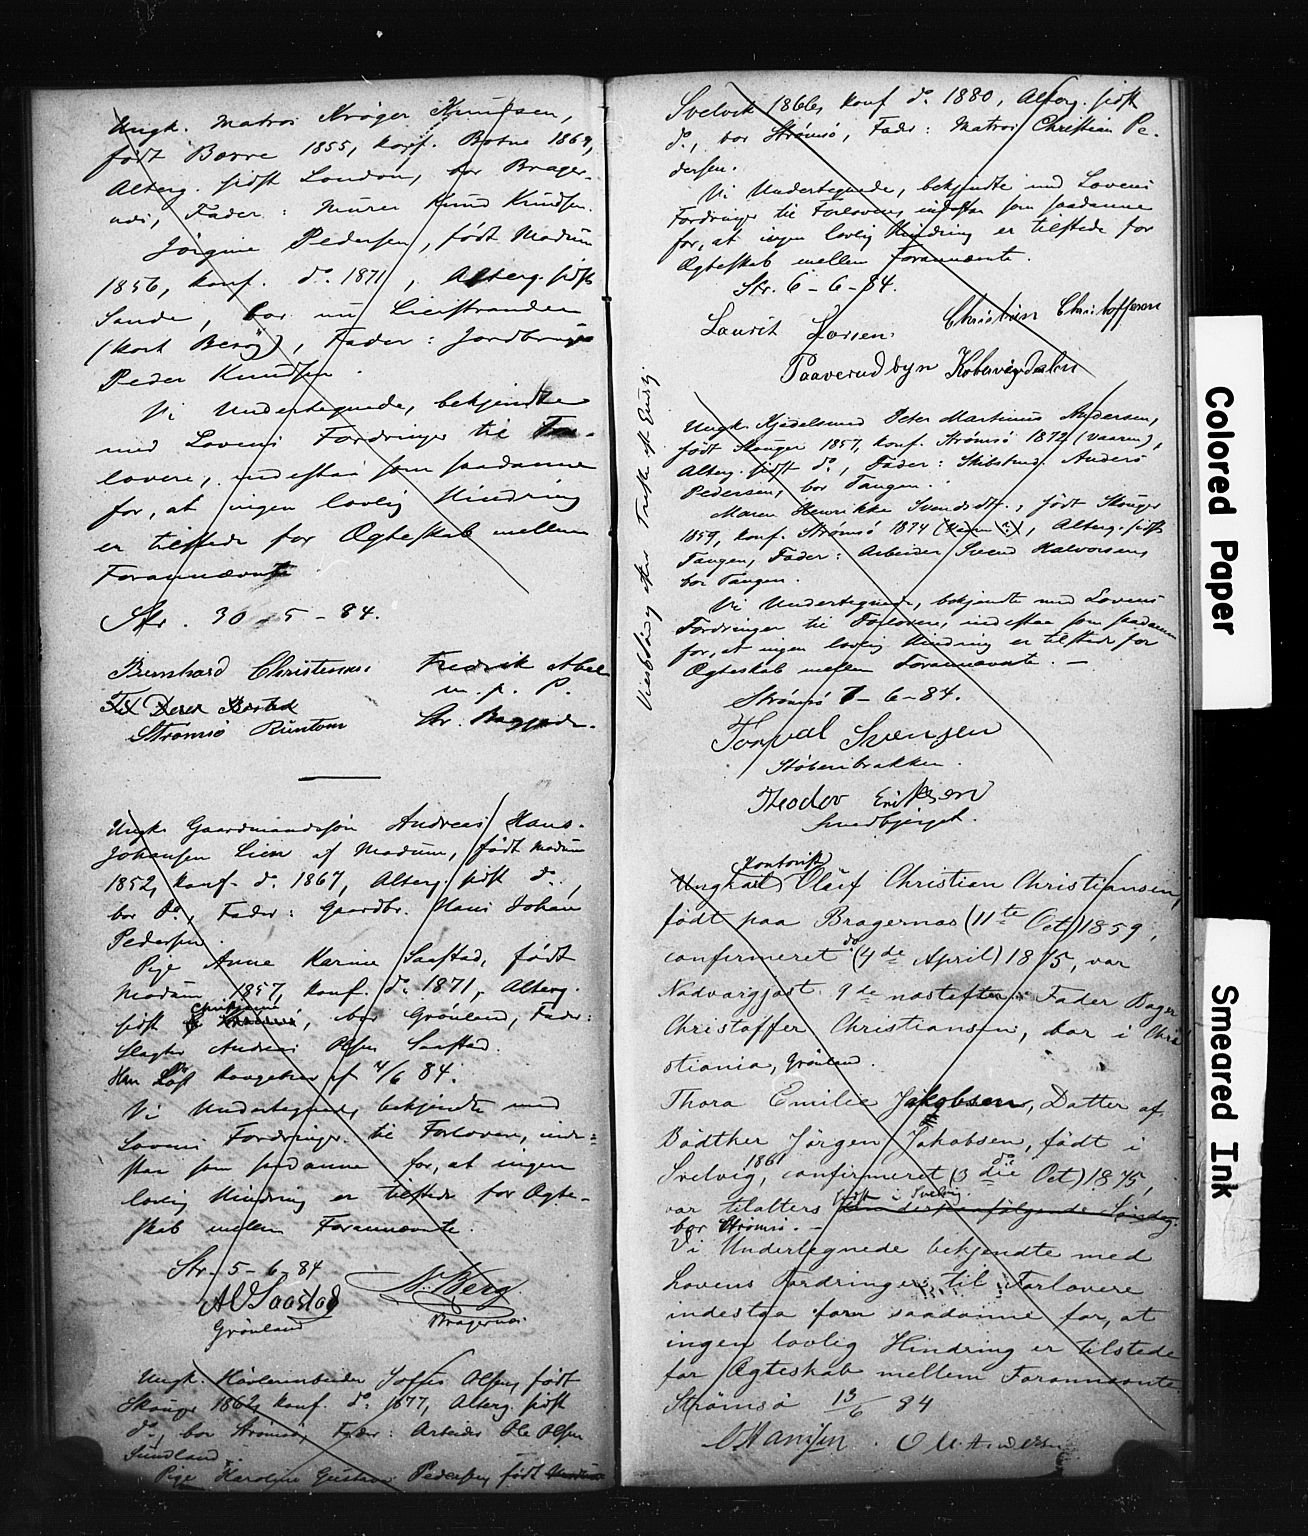 Ungk. Matros Kröger Knudsen,
født Borre 1855, konf. Botne 1869,
Alterg. sidst London, bor Brager-
næs, Fader: Murer Knud Knudsen.
Jörgine Pedersen, født Modum
1856, konf. do. 1871, Alterg. sidst
Sande, bor nu Lierstranden
(kort Besög), Fader: Jordbruger
Peder Knudsen.
Vi Undertegnede, bekjendte
med Lovens Fordringer til For-
lovere, indestaa som saadanne
for, at ingen lovlig Hindring
er tilstede for Ægteskab mellem
Forannævnte
Str. 30-5-84.
Bernhard Christensen Fredrik Abel
m. p. P.
Strömsö Str.
Ungk. Gaardmandssön Andreas Hans-
Johansen Lien af Modum, født Modum
1852, konf. do. 1867, Alterg. sidst do.,
bor do., Fader: Gaardbr. Hans Johan
Pedersen.
Pige Anne Karine Saastad, født
Modum 1857, konf. do. 1871, Alterg.
sidst Christiania, bor Grönland, Fader:
Slagter Andreas Olsen Saastad.
Han Löst Kongebrev af 4/6 84.
Vi Undertegnede, bekjendte med
Lovens Fordringer til Forlovere, inde-
staa som saadanne for, at ingen
lovlig Hindring er tilstede for Ægte-
skab mellem Forannævnte.
Str. 5-6-84
A O Saastad N. Berg.
Grönland Bragernæs
Ungk. Hövleriarbeider Olsen, født
Skouger 1862, konf. do. 1877, Alterg. sidst
do., bor Strömsö, Fader: Arbeider Ole Olsen
Sundland.
Pige Karoline Gustava Pedersen, født Modum
Svelvik 1866, konf do. 1880, Alterg. sidst
do., bor Strömsö, Fader: Matros Christian Pe-
dersen.
Vi Undertegnede, bekjendte med Lovens
Fordringer til Forlovere, indestaa som saadanne
for, at ingen lovlig Hindring er tilstede for
Ægteskab mellem Forannævnte.
Str. 6-6-84.
Laurits Larsen. Christian Christoffersen
Paaverudbyn Kobbervigdalen
Ungk. Kjedelsmed Peter Martinus Andersen,
født Skouger 1857, konf. Strömsö 1872 (Vaaren),
Alterg. sidst do., Fader: Skibstmd. Anders
Pedersen, bor Tangen.
Maren Henrikke Svendsdtr., født Skouger
1859, konf. Strömsö 1874, Alterg. sidst
Tangen, Fader: Arbeider Svend Halvorsen,
bor Tangen.
Vi Undertegnede, bekjendte med Lovens
Fordringer til Forlovere, indestaa som saadanne
for, at ingen lovlig Hindring er tilstede for
Ægteskab mellem Forannævnte. -
Strömsö 7-6-84.
Torval Svensen
Støberibakken.
Theodor Eriksen
Smedbjerget.
Kontorist
Ungkarl Oluf Christian Christiansen,
født paa Bragernæs (11te Oct) 1859,
confirmeret do (4de April) 1875, var
Nadvergjæst 9de næstefter. Fader Bager
Christoffer Christiansen, bor i Chri
stiania, Grönland.
Thora Emilie Jakobsen, Datter af
Bödtker Jörgen Jakobsen, født i
Svelvig, 1861 confirmeret do (3die Oct) 1875,
var tilalters sidst i Svelvig, den derpaafölgende Söndag.
bor Strömsö. -
Vi Undertegnede bekjendte med
Lovens Fordringer til Forlovere
indestaa som saadanne for, at
ingen lovlig Hindring er tilstede
for Ægteskab mellem Forannævnte.
Strömsö 13/6 84
O Hansen. O M Andersen
Colored Paper
Smeared Ink